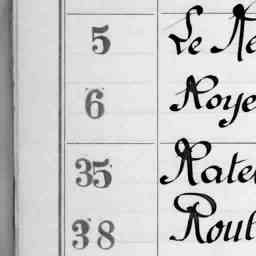 5 Le Ne
6 Roye
35 Ratel
38 Rout